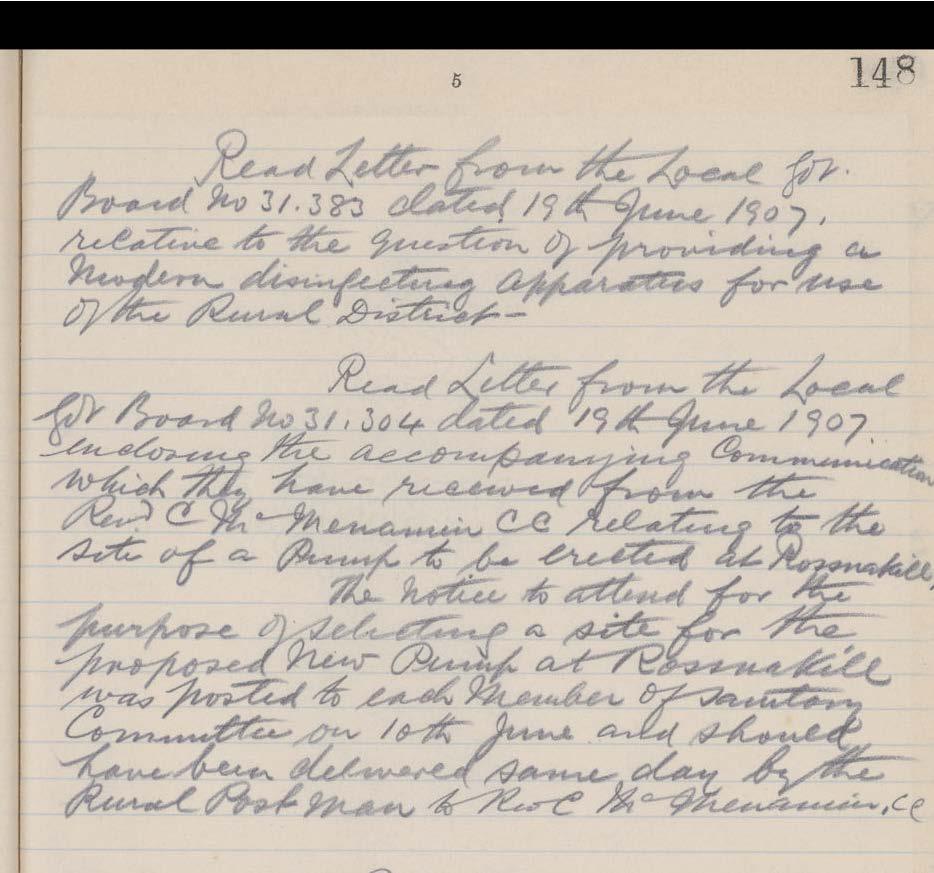 5
148
Read Letter from the Local Gov.
Board No 31.383 dated 19th June 1907.
relative to the question of providing a
Modern disinfecting apparatus for use
of the Rural District -
Read Letter from the Local
Gov Board No 31.304 dated 19th June 1907
enclosing the accompanying Communication
which they have received from the
Revd C McMenamin CC relating to the
site of a Pump to be erected at Rossnakill,
The Notice to attend for the
purpose of selecting a site for the
proposed New Pump at Rossnakill
was posted to each Member of Sanitary
Committee on 10th June and should
have been delivered same day by the
Rural Post Man to Rev C McMenamin, CC